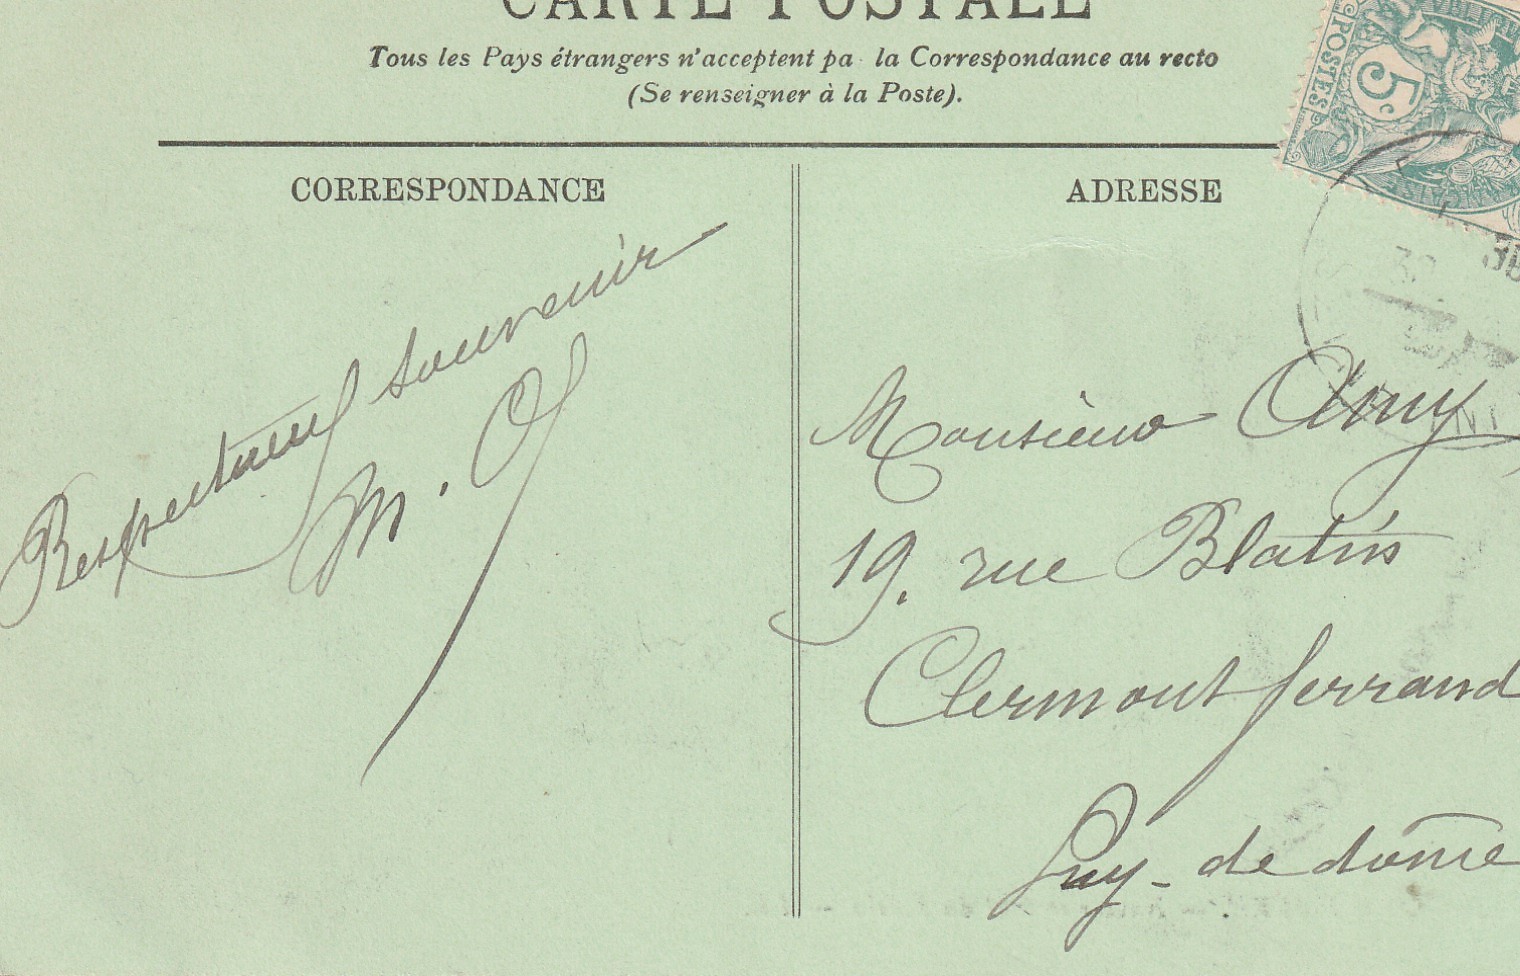 CARTE POSTALE
Tous les Pays étrangers n'acceptent pa la Correspondance au recto
(Se renseigner à la Poste).
CORRESPONDANCE
Respectueux souvenir
ADRESSE
POSTES
5c
Monsieur Amy
19. rue Blatin
Clermont ferrand
Puy-de dôme